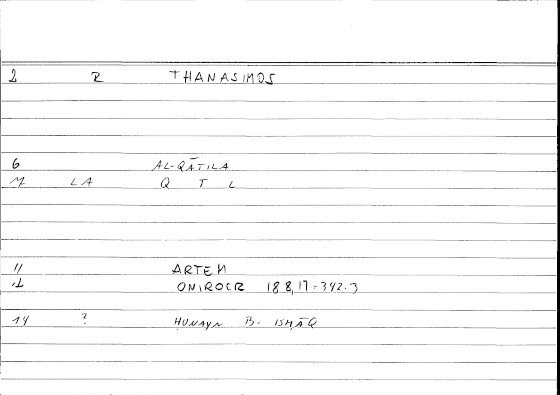 2 R THANASIMOS
6 AL-QĀTILA
M LA Q T L
11 ARTEM
ONIROCR 188,17=342.3
14 ? ḤUNAYN B. ISḤĀQ